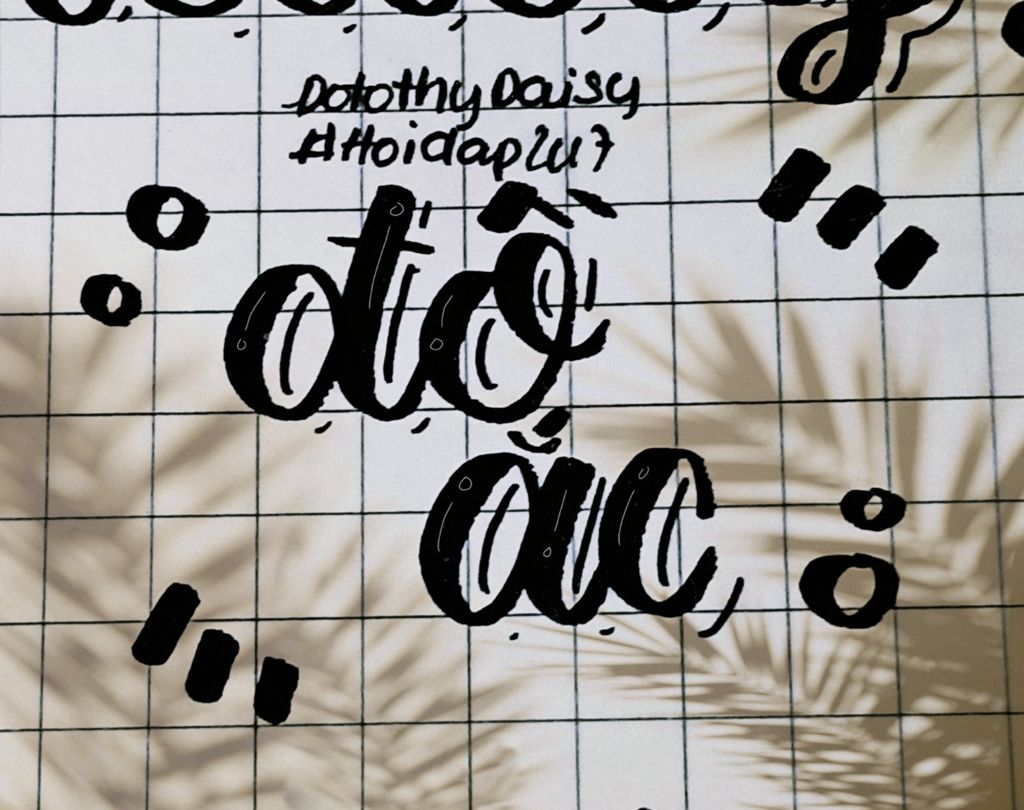 Dotothy Daisy
#Hoidap247
đồ
ác